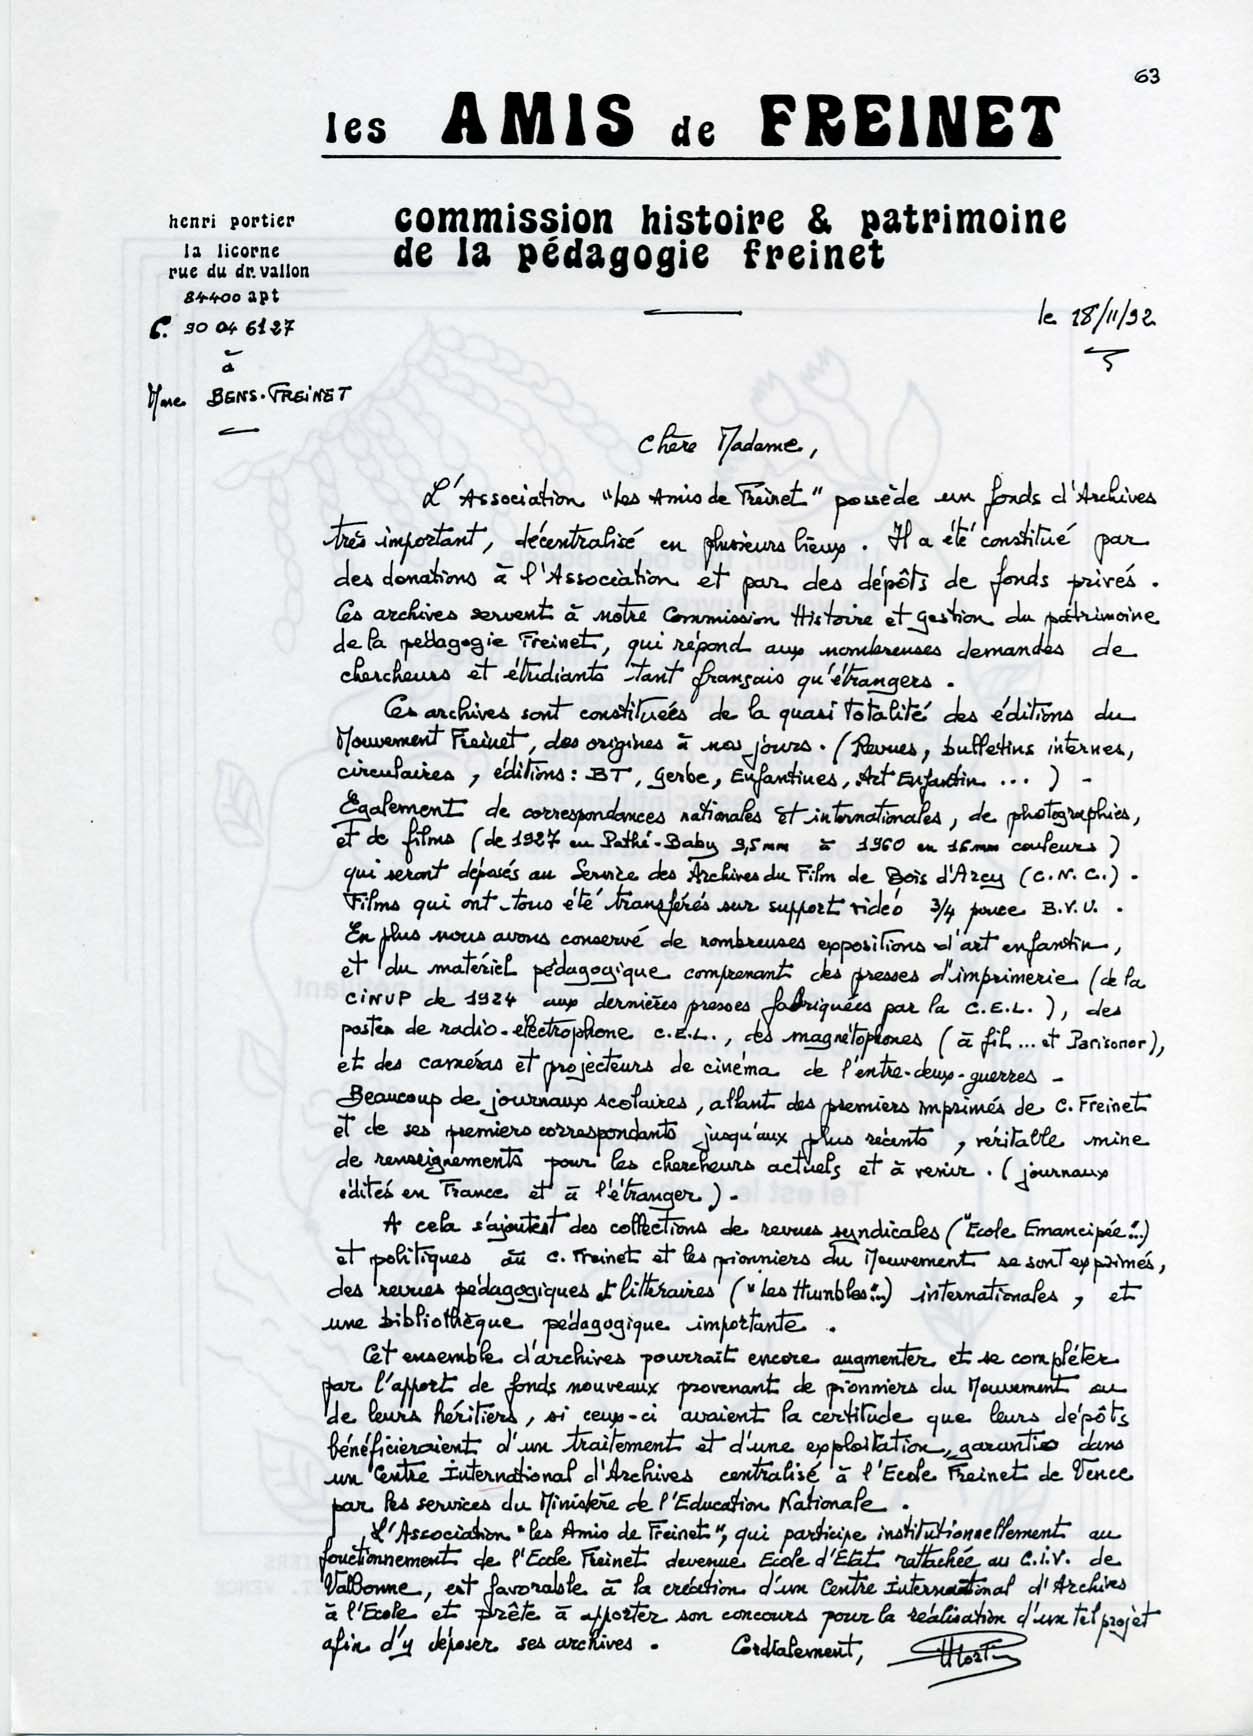 63
les AMIS de FREINET
commission histoire & patrimoine
de la pédagogie freinet
henri portier
la licorne
rue du dr. vallon
84400 apt
90 04 61 27
à
Mme BENS-FREINET
le 18/11/92
Chère Madame,
L'Association "Les Amis de Freinet" possède un fonds d'Archives
très important, décentralisé en plusieurs lieux. Il a été constitué par
des donations à l'Association et par des dépôts de fonds privés.
Ces archives servent à notre Commission Histoire et gestion du patrimoine
de la pédagogie Freinet, qui répond aux nombreuses demandes de
chercheurs et étudiants tant français qu'étrangers.
Ces archives sont constituées de la quasi totalité des éditions du
Mouvement Freinet, des origines à nos jours. (Revues, bulletins internes,
circulaires, éditions: BT, Gerbe, Enfantines, Art Enfantin ...) -
Egalement de correspondances nationales et internationales, de photographies,
et de films (de 1927 en Pathé-Baby 9,5mm à 1960 en 16mm couleurs)
qui seront déposés au Service des Archives du Film de Bois d'Arcy (C.N.C.).
Films qui ont tous été transférés sur support vidéo 3/4 pouce B.V.U.
En plus nous avons conservé de nombreuses expositions d'art enfantin,
et du matériel pédagogique comprenant des presses d'imprimerie (de la
CINUP de 1924 aux dernières presses fabriquées par la C.E.L.), des
postes de radio-électrophone C.E.L., des magnétophones (à fil ... et Parisonor),
et des caméras et projecteurs de cinéma de l'entre-deux-guerres -
Beaucoup de journaux scolaires, allant des premiers imprimés de C. Freinet
et de ses premiers correspondants jusqu'aux plus récents, véritable mine
de renseignements pour les chercheurs actuels et à venir. (journaux
édités en France et à l'étranger) -
A cela s'ajoutent des collections de revues syndicales ("Ecole Emancipée"...)
et politiques où C. Freinet et les pionniers du Mouvement se sont exprimés,
des revues pédagogiques et littéraires ("Les Humbles"...) internationales, et
une bibliothèque pédagogique importante.
Cet ensemble d'archives pourrait encore augmenter et se compléter
par l'apport de fonds nouveaux provenant de pionniers du Mouvement ou
de leurs héritiers, si ceux-ci avaient la certitude que leurs dépôts
bénéficieraient d'un traitement et d'une exploitation, garantis dans
un Centre International d'Archives centralisé à l'Ecole Freinet de Vence
par les services du Ministère de l'Education Nationale.
L'Association "les Amis de Freinet", qui participe institutionnellement au
fonctionnement de l'Ecole Freinet devenue Ecole d'Etat rattachée au C.I.V. de
Valbonne, est favorable à la création d'un Centre International d'Archives
à l'Ecole et prête à apporter son concours pour la réalisation d'un tel projet
afin d'y déposer ses archives. Cordialement,